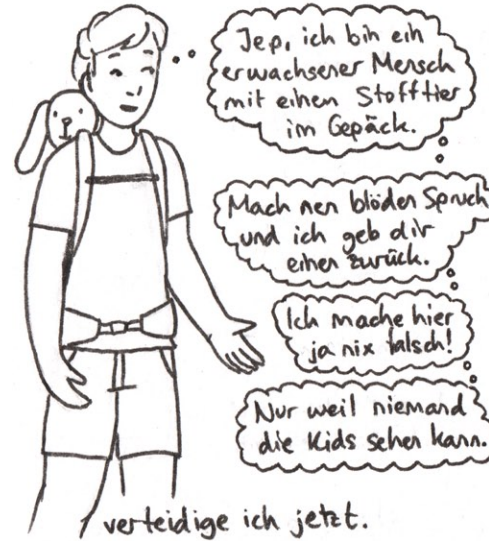 Jep, ich bin ein
erwachsener Mensch
mit einen Stofftier
im Gepäck.
Mach nen blöden Spruch
und ich geb dir
einen zurück.
Ich mache hier
ja nix falsch!
Nur weil niemand
die Kids sehen kann.
verteidige ich jetzt.